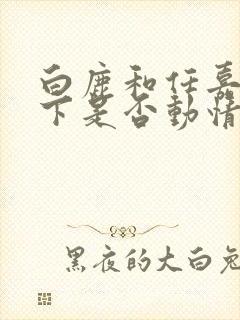 白鹿和任嘉
下是否動情
黑夜的大白兔